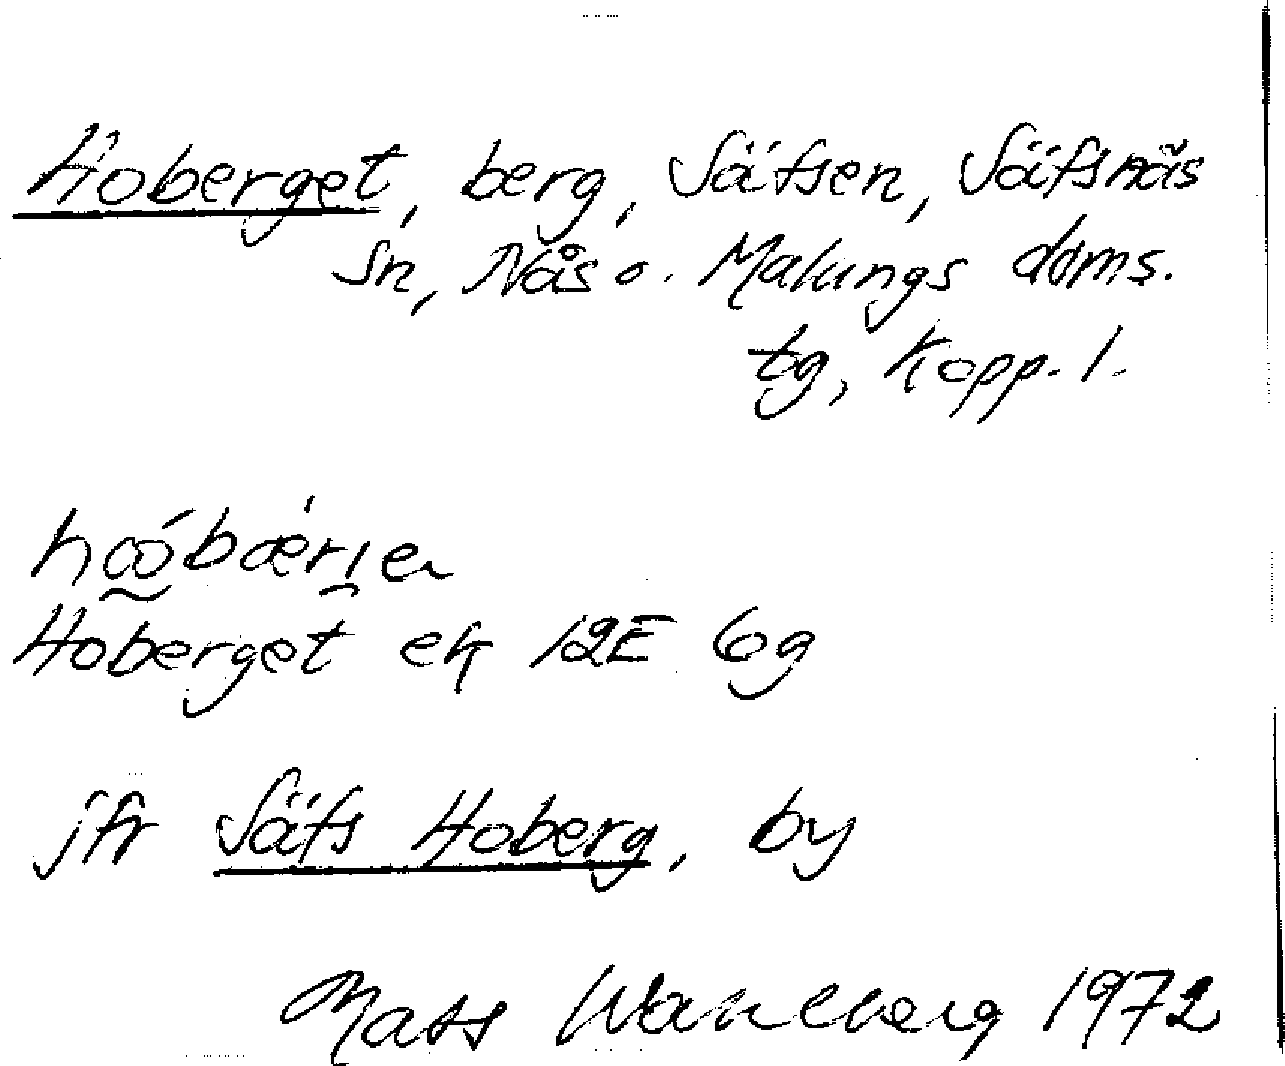 Hoberget, berg, Säfsen, Säfsnäs
sn, Nås o. Malungs doms.
tg, Kopp. l.
Hoberget ek 12E 6g
jfr Säfs Hoberg, by
Mats Wahlberg 1972